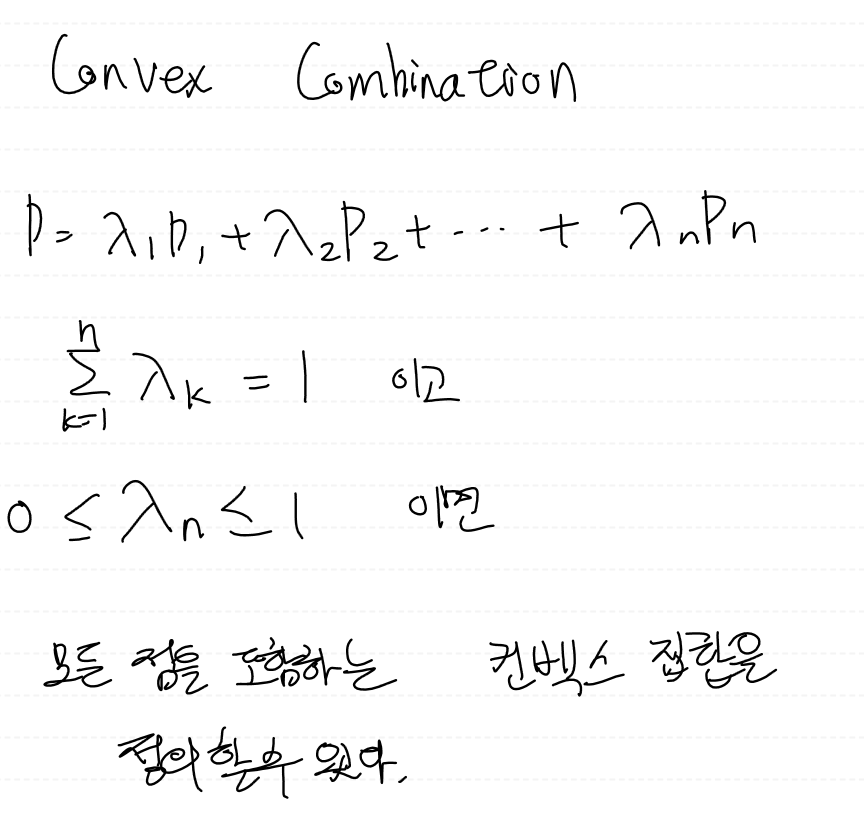 Convex Combination
P = λ₁P₁ + λ₂P₂ + ⋯ + λₙPₙ
∑ₖ₌₁ⁿ λₖ = 1 이고
0 ≤ λₙ ≤ 1 이면
모든 점을 포함하는 컨벡스 집합을
정의 할 수 있다.